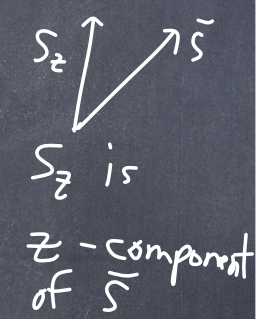 S_z s̄
S_z is
z - component
of s̄